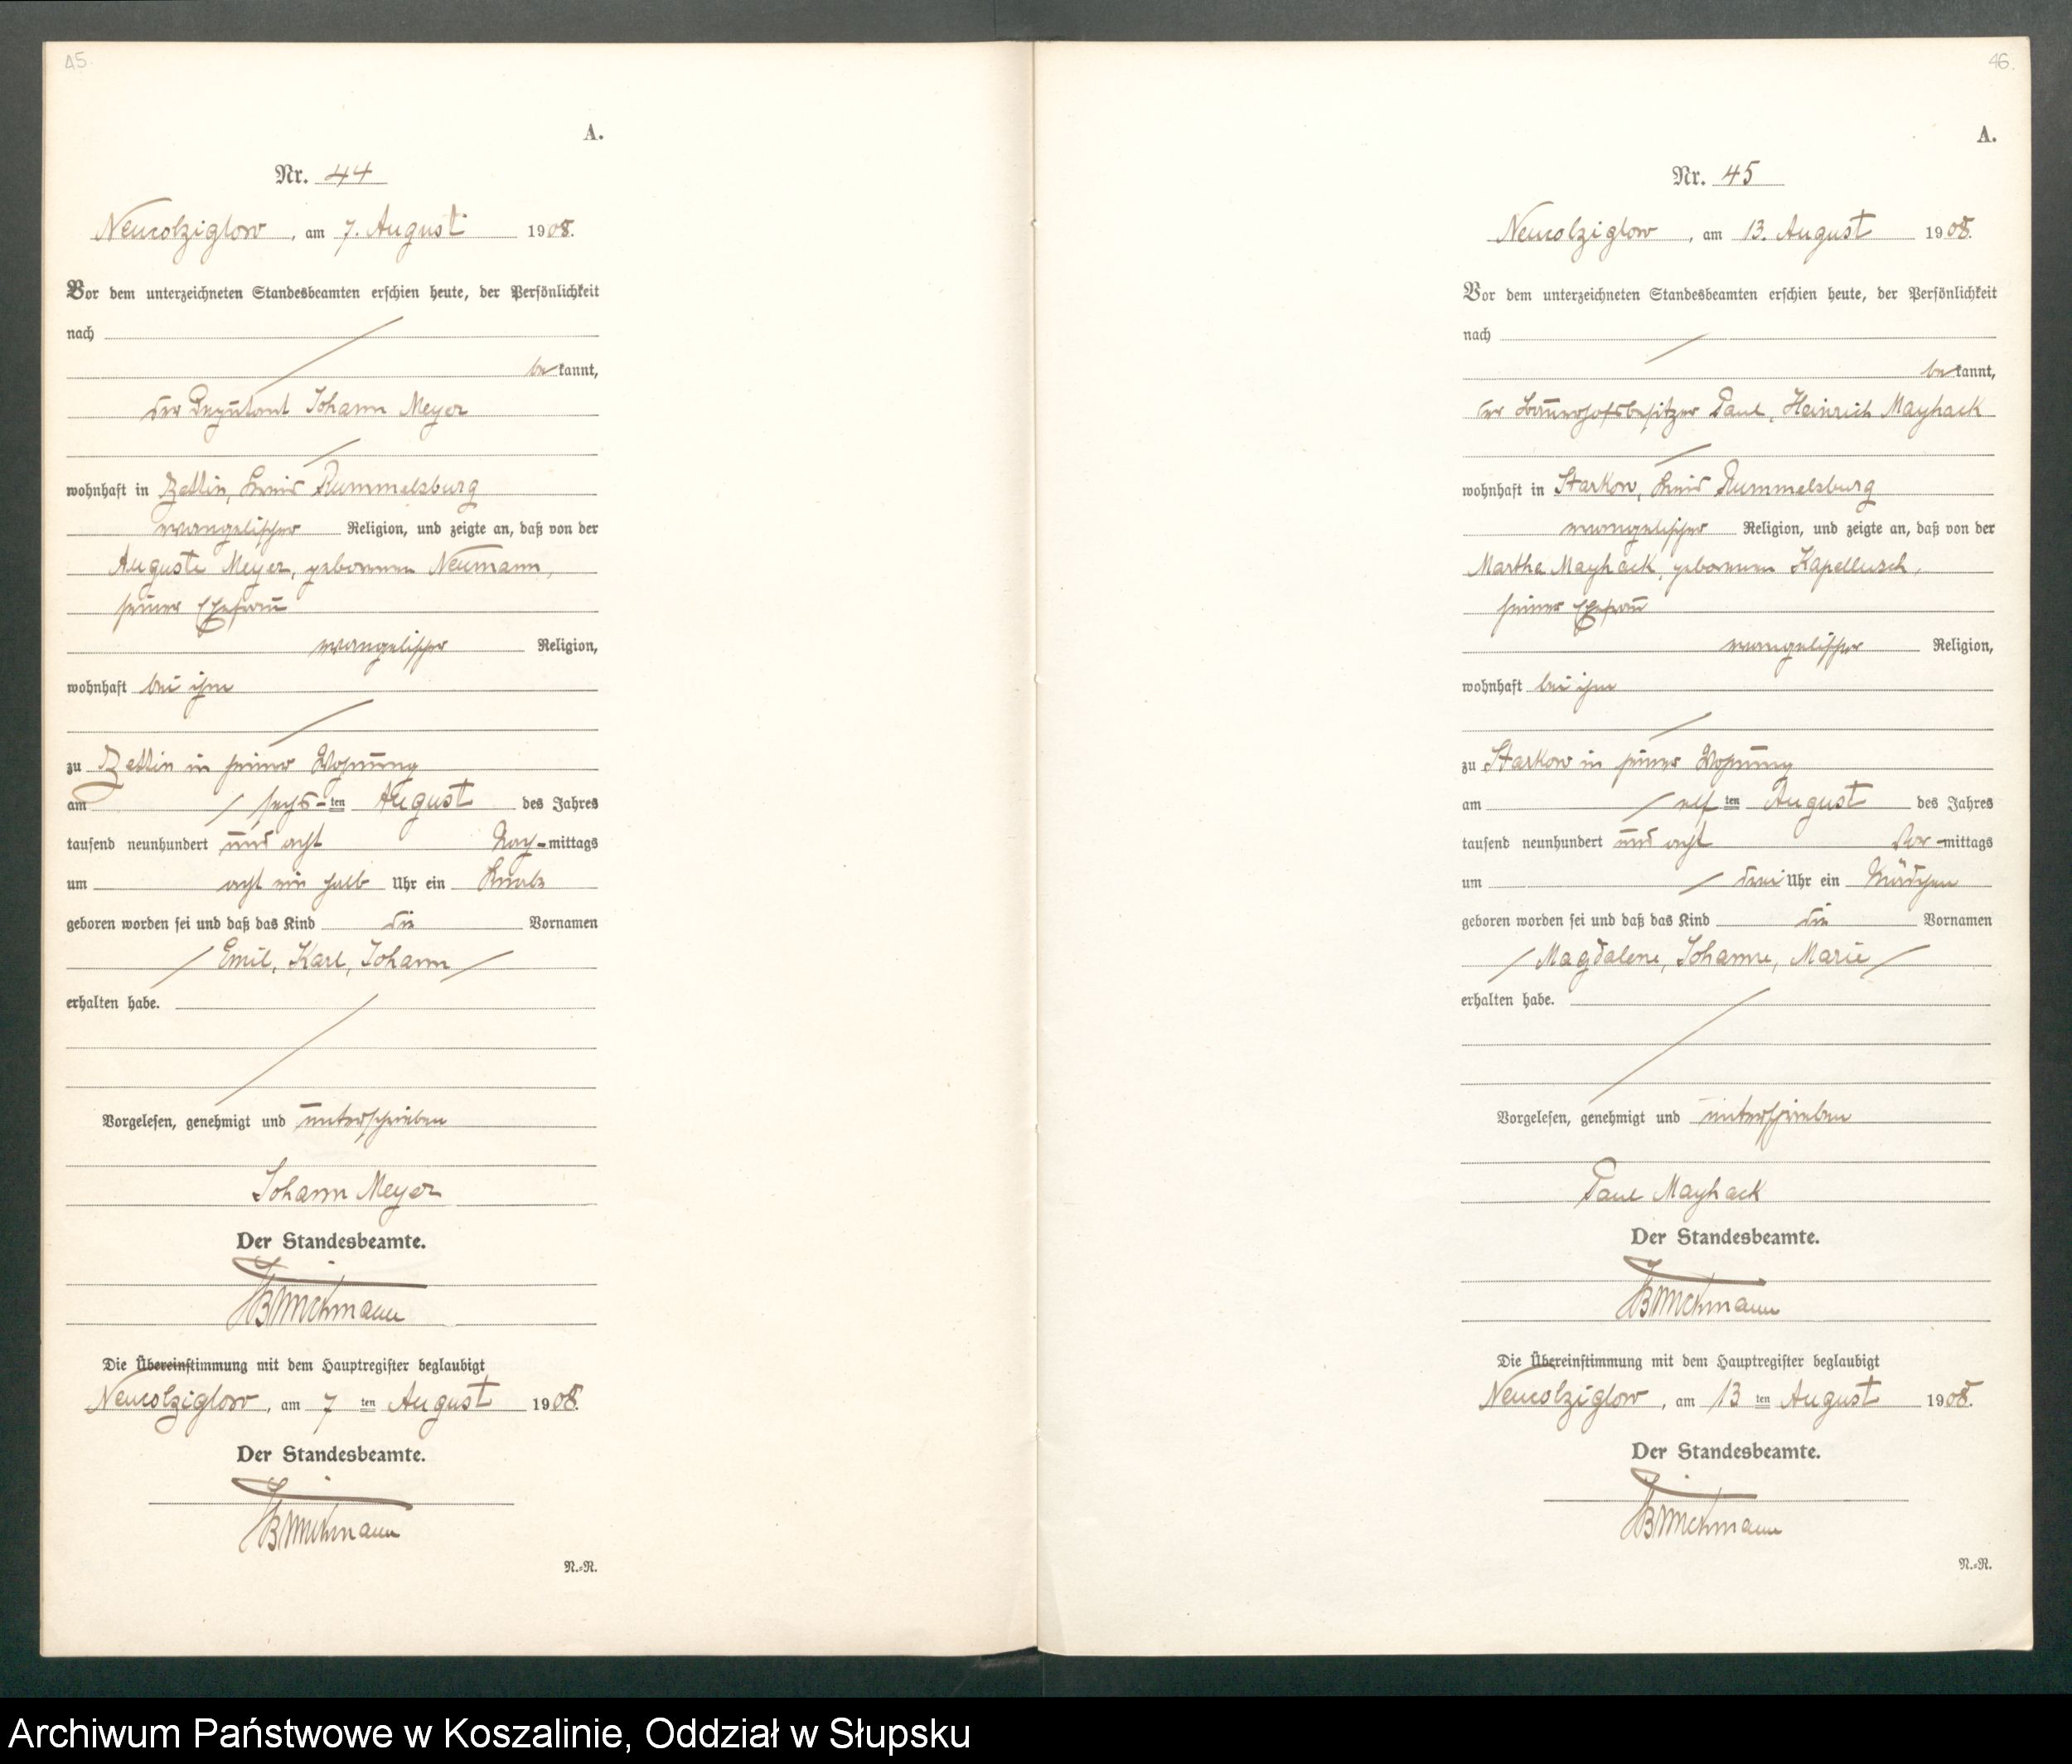 45.
A.
Nr. 44
Neucolziglow, am 7. August 1908.
Vor dem unterzeichneten Standesbeamten erschien heute, der Persönlichkeit
nach
be kannt,
der Deputant Johann Meyer
wohnhaft in Zettin, Kreis Rummelsburg
evangelischer Religion, und zeigte an, daß von der
Auguste Meyer, geborenen Neumann,
seiner Ehefrau
evangelischer Religion,
wohnhaft bei ihm
zu Zettin in seiner Wohnung
am sechs-ten August des Jahres
tausend neunhundert und acht Nach-mittags
um acht ein halb Uhr ein Knabe
geboren worden sei und daß das Kind die Vornamen
Emil, Karl, Johann
erhalten habe.
Vorgelesen, genehmigt und unterschrieben
Johann Meyer
Der Standesbeamte.
Brinckmann
Die Übereinstimmung mit dem Hauptregister beglaubigt
Neucolziglow, am 7 ten August 1908.
Der Standesbeamte.
Brinckmann
N.=R.
46.
A.
Nr. 45
Neucolziglow, am 13. August 1908.
Vor dem unterzeichneten Standesbeamten erschien heute, der Persönlichkeit
nach
be kannt,
der Bauerhofsbesitzer Paul, Heinrich Mayhack
wohnhaft in Starkow, Kreis Rummelsburg
evangelischer Religion, und zeigte an, daß von der
Martha Mayhack, geborenen Kapellusch,
seiner Ehefrau
evangelischer Religion,
wohnhaft bei ihm
zu Starkow in seiner Wohnung
am elf ten August des Jahres
tausend neunhundert und acht Vor-mittags
um drei Uhr ein Mädchen
geboren worden sei und daß das Kind die Vornamen
Magdalene, Johanne, Marie
erhalten habe.
Vorgelesen, genehmigt und unterschrieben
Paul Mayhack
Der Standesbeamte.
Brinckmann
Die Übereinstimmung mit dem Hauptregister beglaubigt
Neucolziglow, am 13 ten August 1908.
Der Standesbeamte.
Brinckmann
N.=R.
Archiwum Państwowe w Koszalinie, Oddział w Słupsku